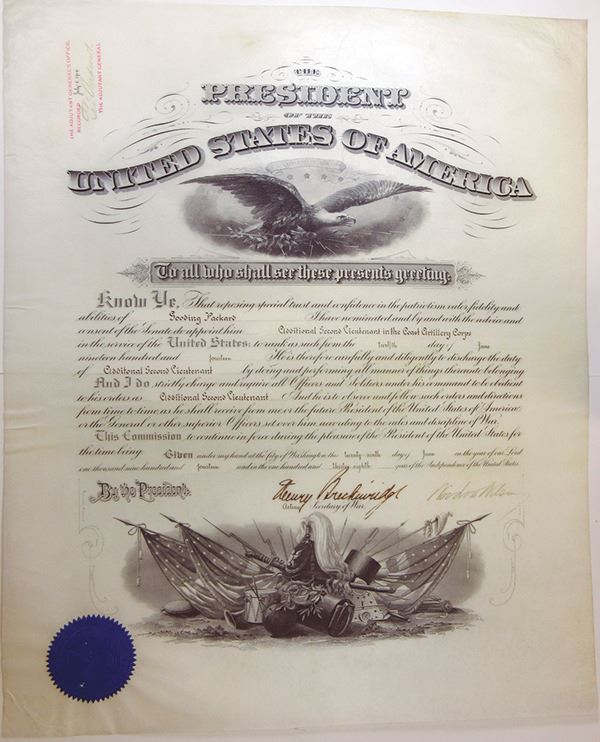 THE ADJUTANT GENERAL'S OFFICE,
RECORDED July 1, 1914
THE ADJUTANT GENERAL
THE
PRESIDENT
OF THE
UNITED STATES OF AMERICA
To all who shall see these presents greeting:
Know Ye, That reposing special trust and confidence in the patriotism valor fidelity and
abilities of Gooding Packard I have nominated and by and with the advice and
consent of the Senate do appoint him Additional Second Lieutenant in the Coast Artillery Corps
in the service of the United States: to rank as such from the twelfth day of June
nineteen hundred and fourteen He is therefore carefully and diligently to discharge the duty
of Additional Second Lieutenant by doing and performing all manner of things thereunto belonging
And I do strictly charge and require all Officers and Soldiers under his command to be obedient
to his orders as Additional Second Lieutenant And he is to observe and follow such orders and directions
from time to time as he shall receive from me or the future President of the United States of America
or the General or other superior Officers set over him according to the rules and discipline of War.
This Commission to continue in force during the pleasure of the President of the United States for
the time being. Given under my hand at the City of Washington this twenty-ninth day of June in the year of our Lord
one thousand nine hundred and fourteen and in the one hundred and thirty eighth year of the Independence of the United States
By the President:
Henry Breckinridge
Acting Secretary of War.
Woodrow Wilson